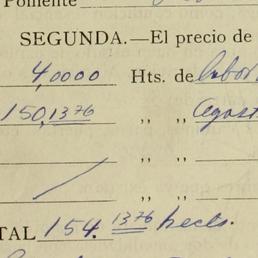 Poniente
SEGUNDA.—El precio de
4,0000 Hts. de labor
150,1376 ,, ,, Agost
,, ,,
,, ,,
TAL 154. 1376 hects.